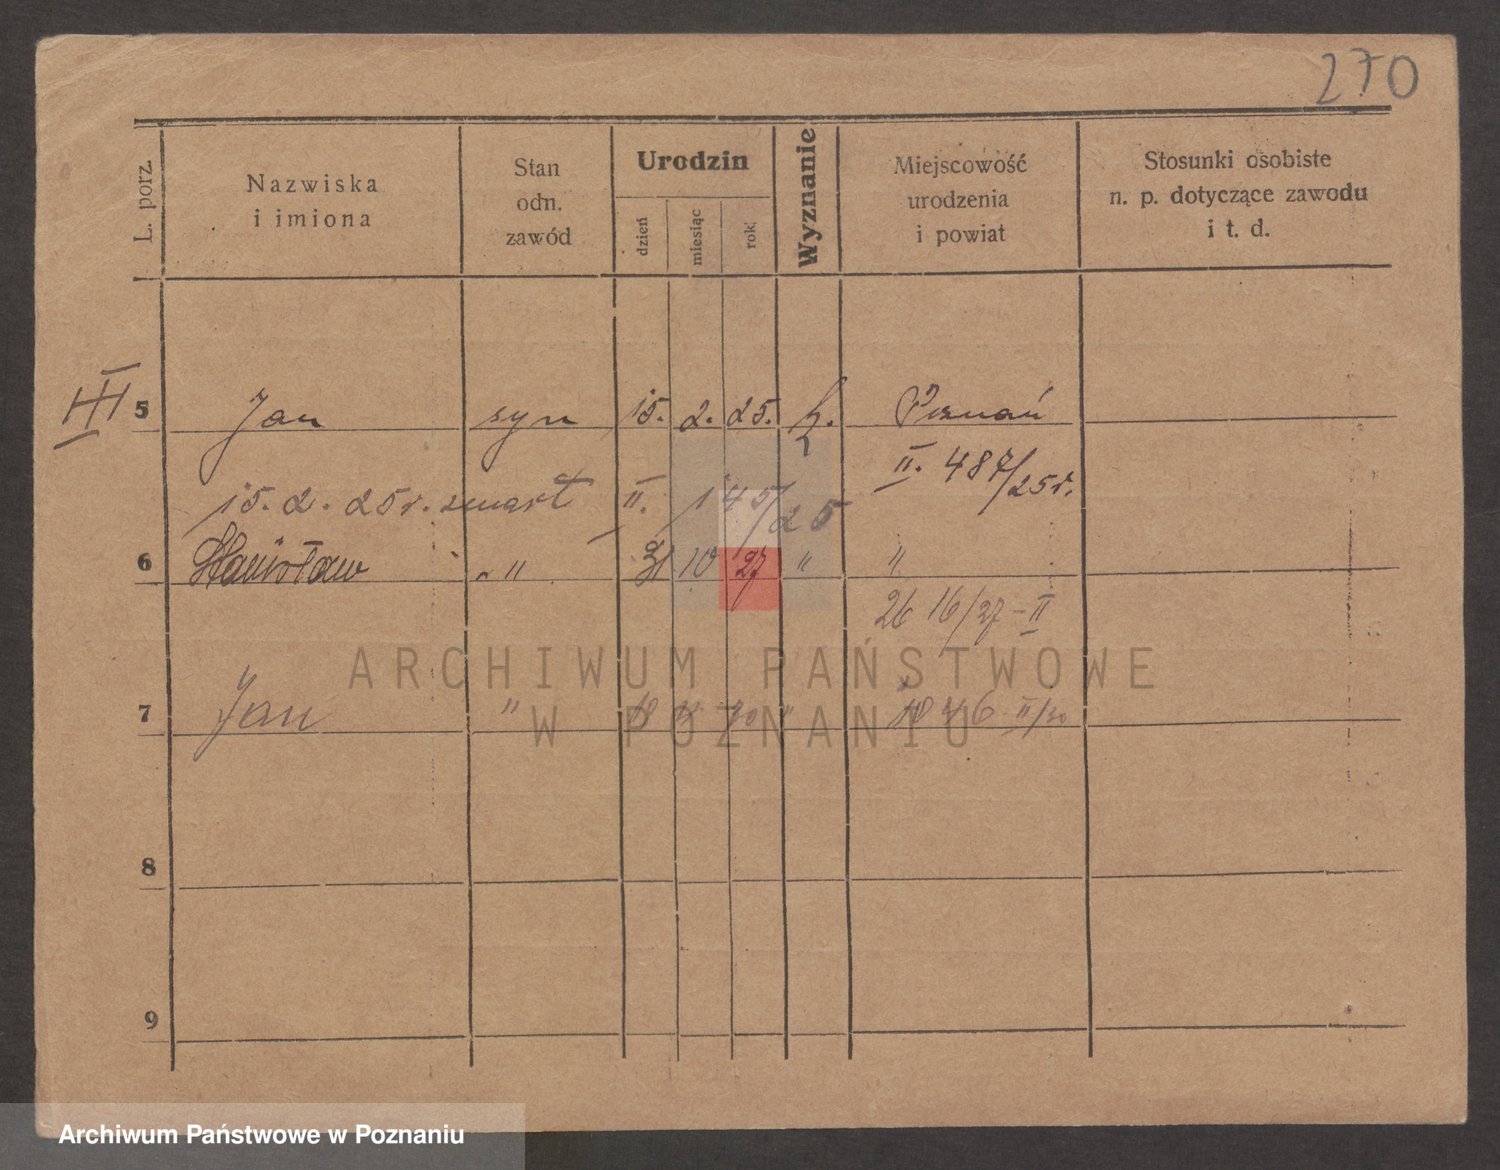 270
L. porz
Nazwiska
i imiona
Stan
odn.
zawód
Urodzin
dzień
miesiąc
rok
Wyznanie
Miejscowość
urodzenia
i powiat
Stosunki osobiste
n. p. dotyczące zawodu
i t. d.
III 5 Jan syn 15. 2. 25. k. Poznań
II. 487/25r.
15. 2. 25r. zmart II. 145/25
6 Stanisław " 31 10 27 " "
26 16/27 - II
ARCHIWUM PAŃSTWOWE
7 Jan " "
W POZNANIU
8
9
Archiwum Państwowe w Poznaniu